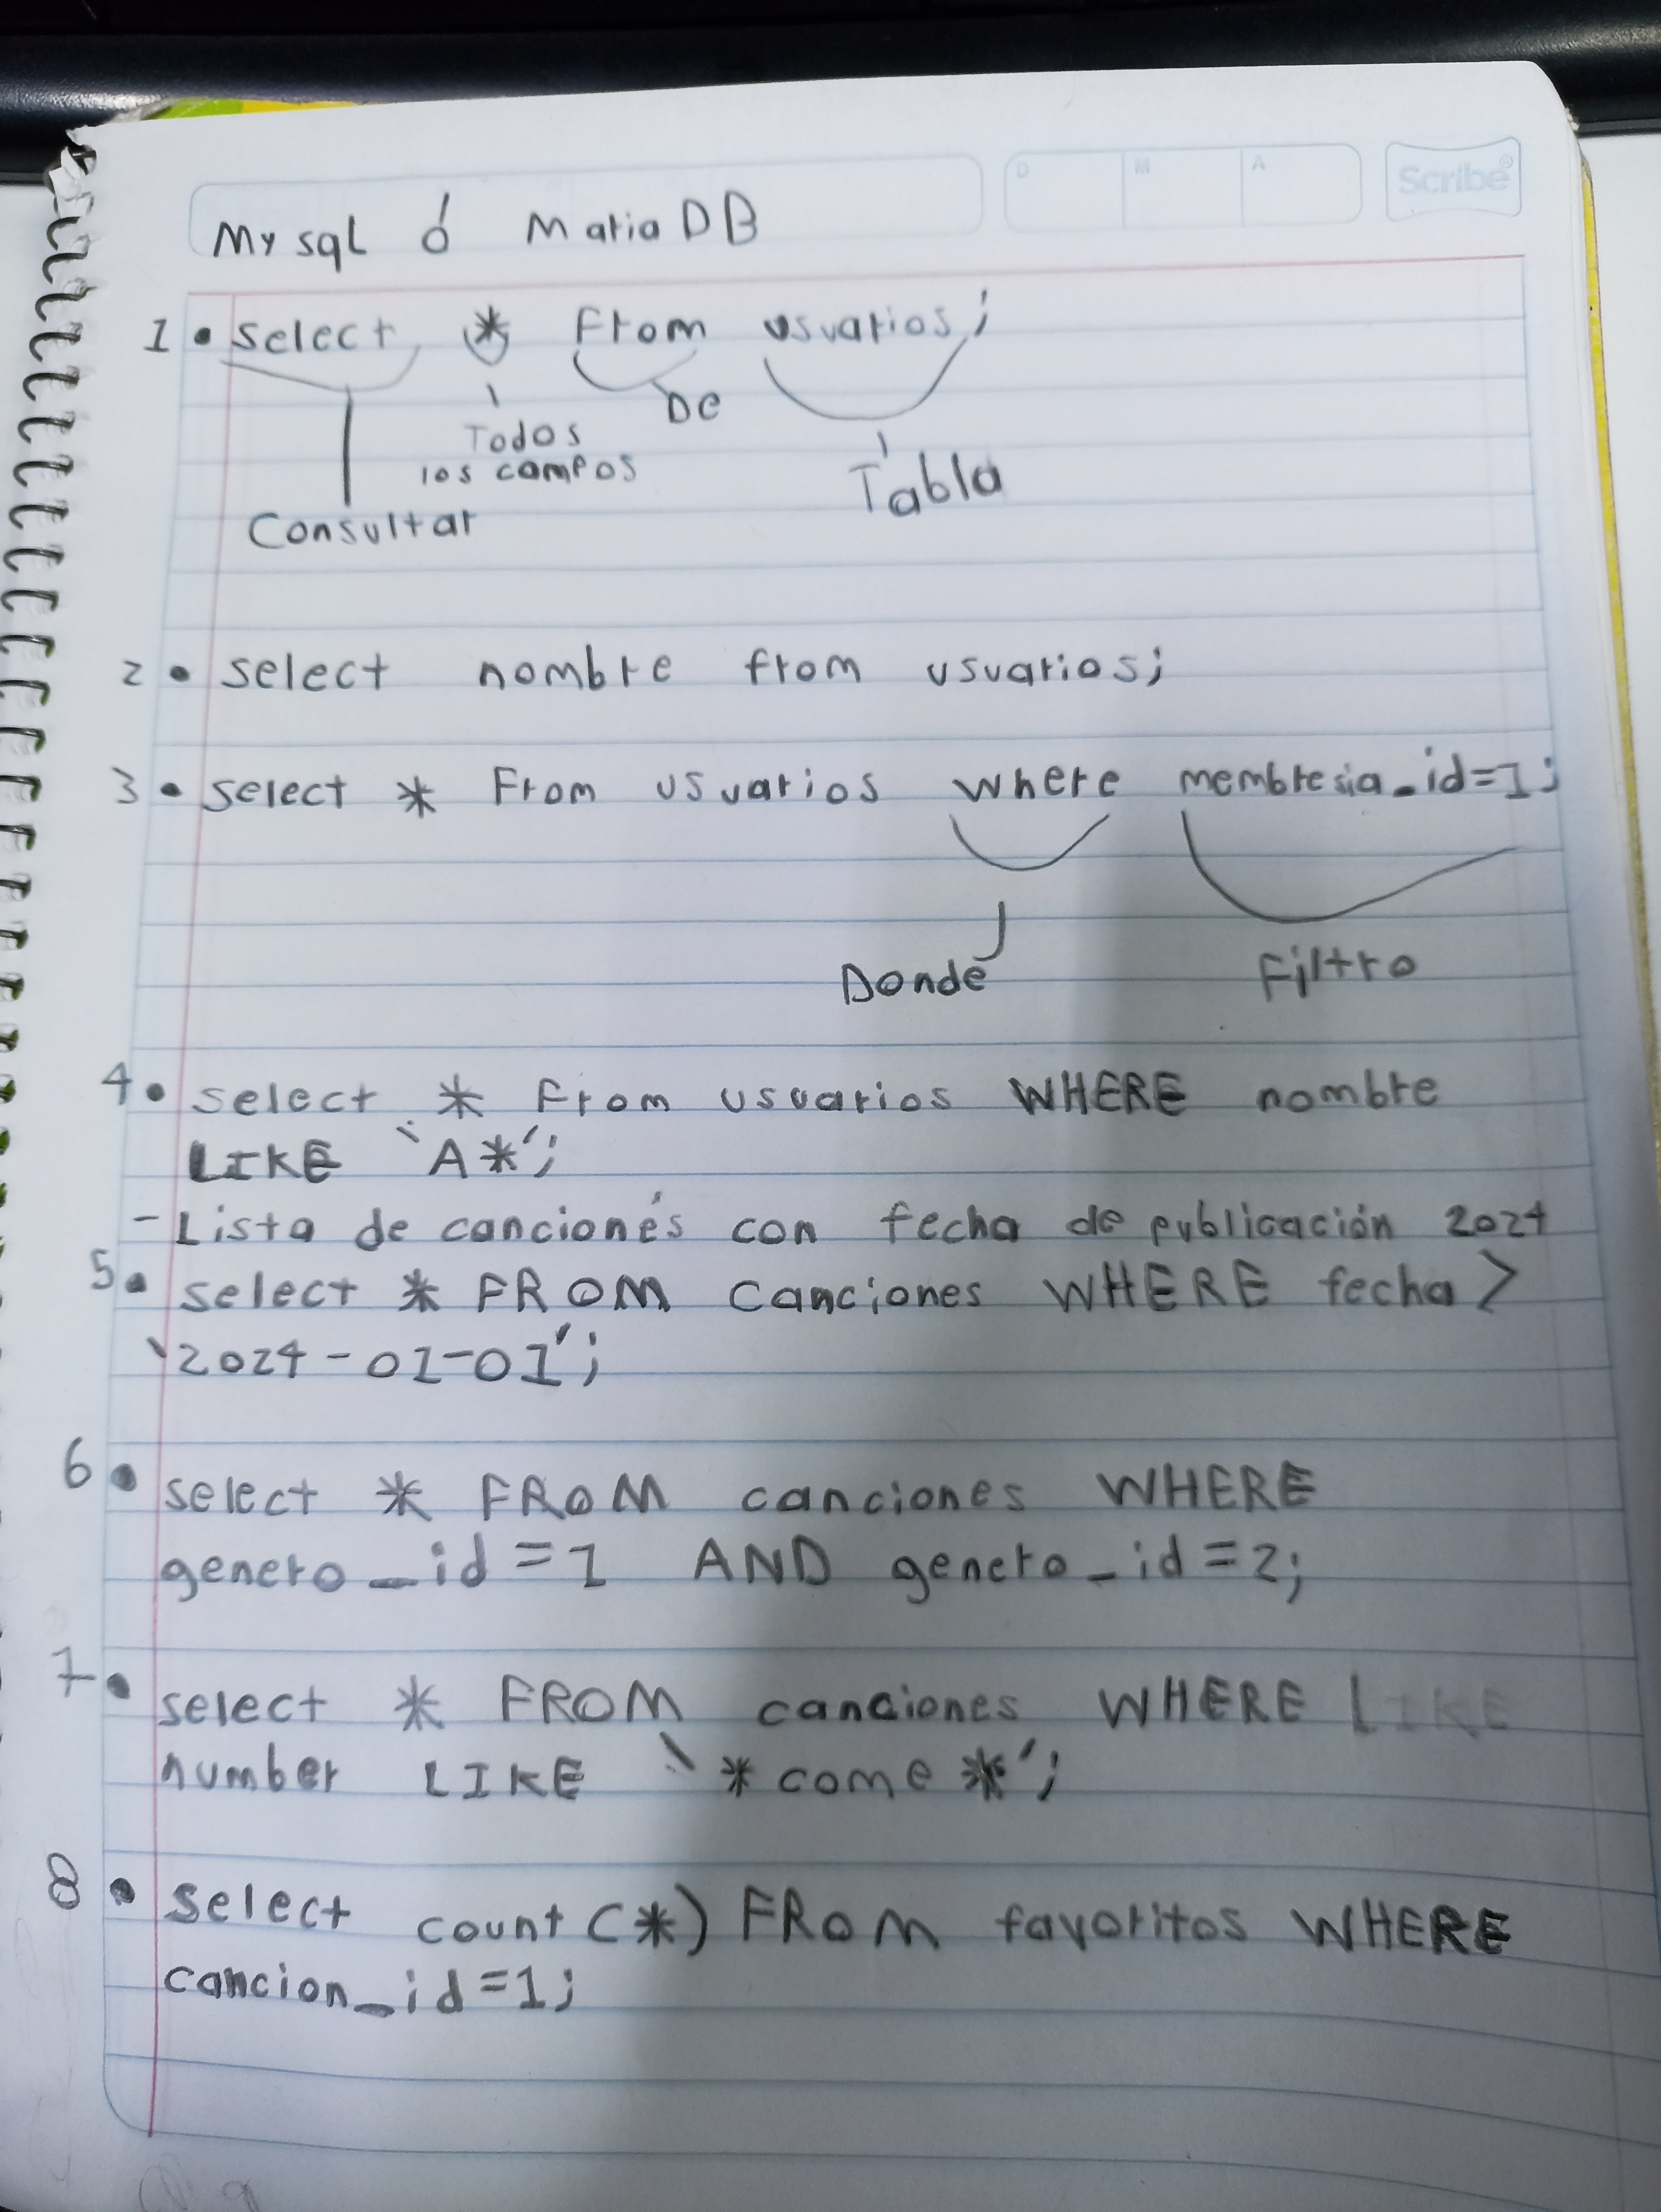 D M A Scribe®
My sql ó MariaDB
1 • select * From usuarios;
De
Todos
los campos
Tabla
Consultar
2 • select nombre from usuarios;
3 • select * From usuarios where membresia_id=1;
Donde Filtro
4 • select * From usuarios WHERE nombre
LIKE `A*';
- Lista de canciones con fecha de publicación 2024
5 • select * FROM canciones WHERE fecha >
`2024-01-01';
6 • select * FROM canciones WHERE
genero_id=1 AND genero_id=2;
7 • select * FROM canciones WHERE LIKE
number LIKE `*come*';
8 • select count(*) FROM favoritos WHERE
cancion_id=1;